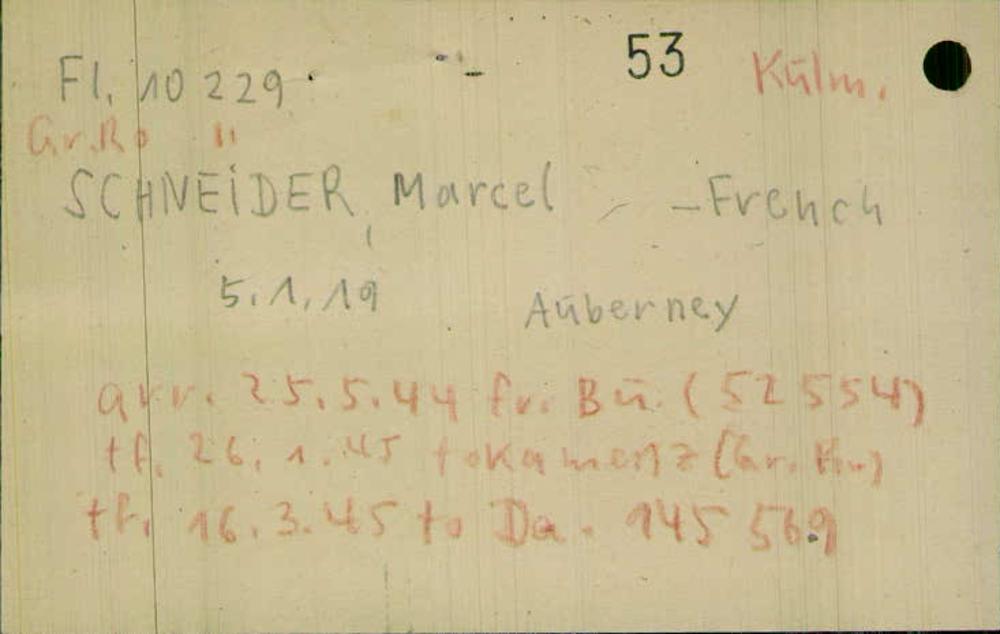 53 Külm.
Fl. 10 229
Gr. Ro "
SCHNEIDER, Marcel - French
5.1.19 Auberney
arr. 25.5.44 fr. Bu. (52 554)
tf. 26.1.45 to Kamenz (Gr. Ro)
tf. 16.3.45 to Da. 145 569